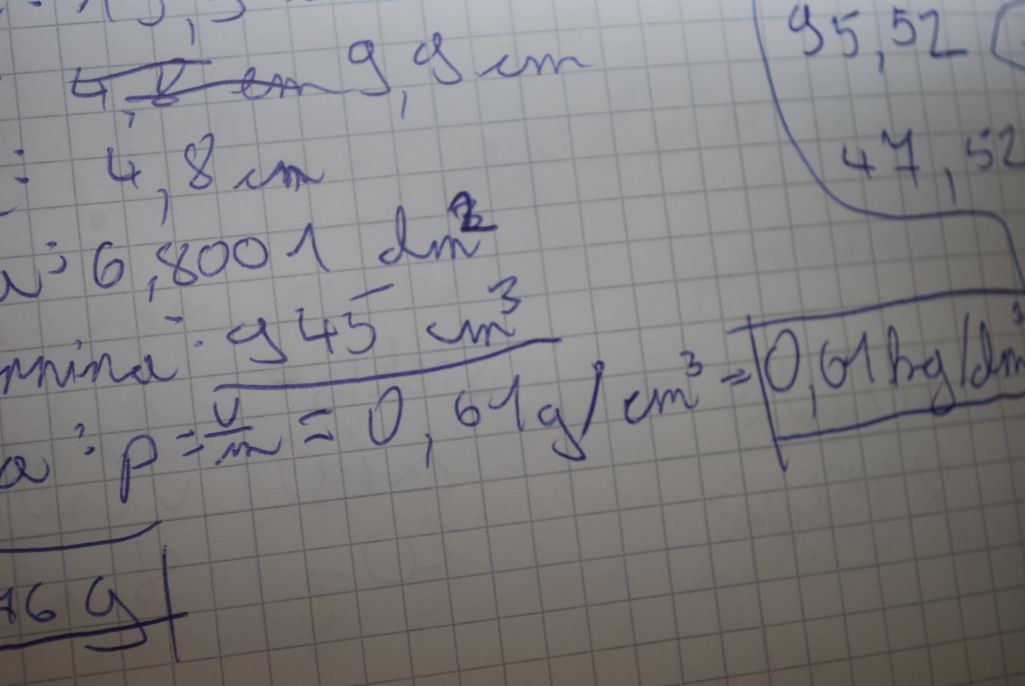 9,9 cm
: 4,8 cm
: 6,8001 dm²
: 945 cm³
a: p = v/m = 0,61g/cm³ = 0,61kg/dm³
76 g
95,52
47,52